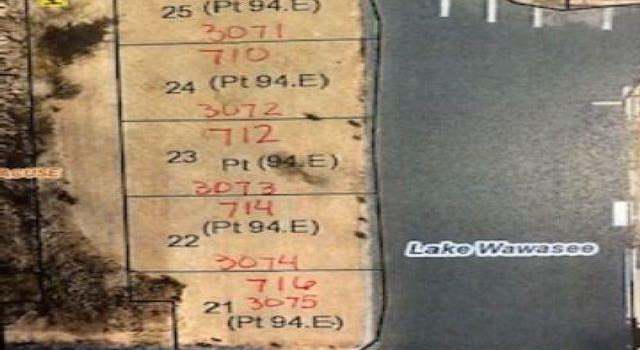 25 (Pt 94.E)
3071
710
24 (Pt 94.E)
3072
712
23 Pt (94.E)
3073
714
(Pt 94.E)
22
3074
716
21 3075
(Pt 94.E)
Lake Wawasee